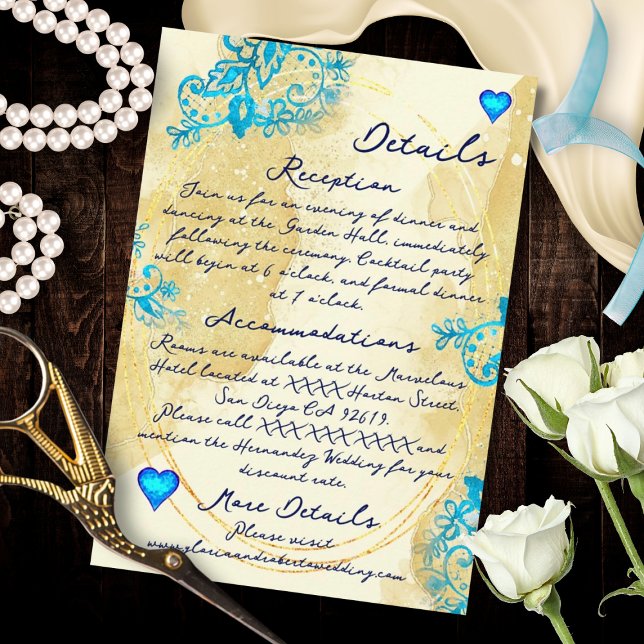 Details
Reception
Join us for an evening of dinner and
dancing at the Garden Hall, immediately
following the ceremony. Cocktail party
will begin at 6 o'clock, and formal dinner
at 7 o'clock.
Accommodations
Rooms are available at the Marvelous
Hotel located at XXXX Horton Street,
San Diego CA 92619.
Please call XXXXXXXXXX and
mention the Hernandez Wedding for your
discount rate.
More Details
Please visit
www.gloriaandrobertowedding.com